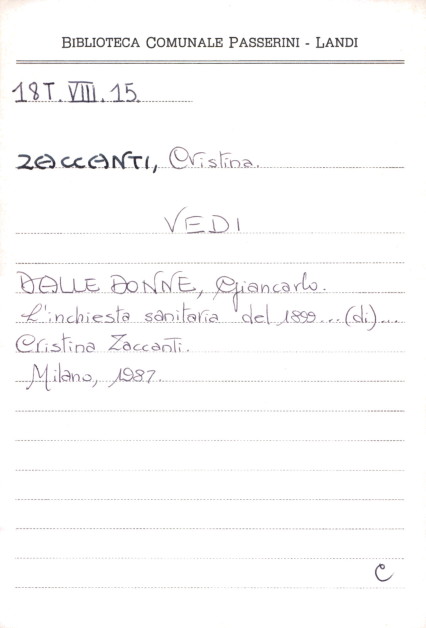 BIBLIOTECA COMUNALE PASSERINI - LANDI
18T. VIII. 15.
ZACCANTI, Cristina.
VEDI
DALLE DONNE, Giancarlo.
L'inchiesta sanitaria del 1899...(di)...
Cristina Zaccanti.
Milano, 1987.
C